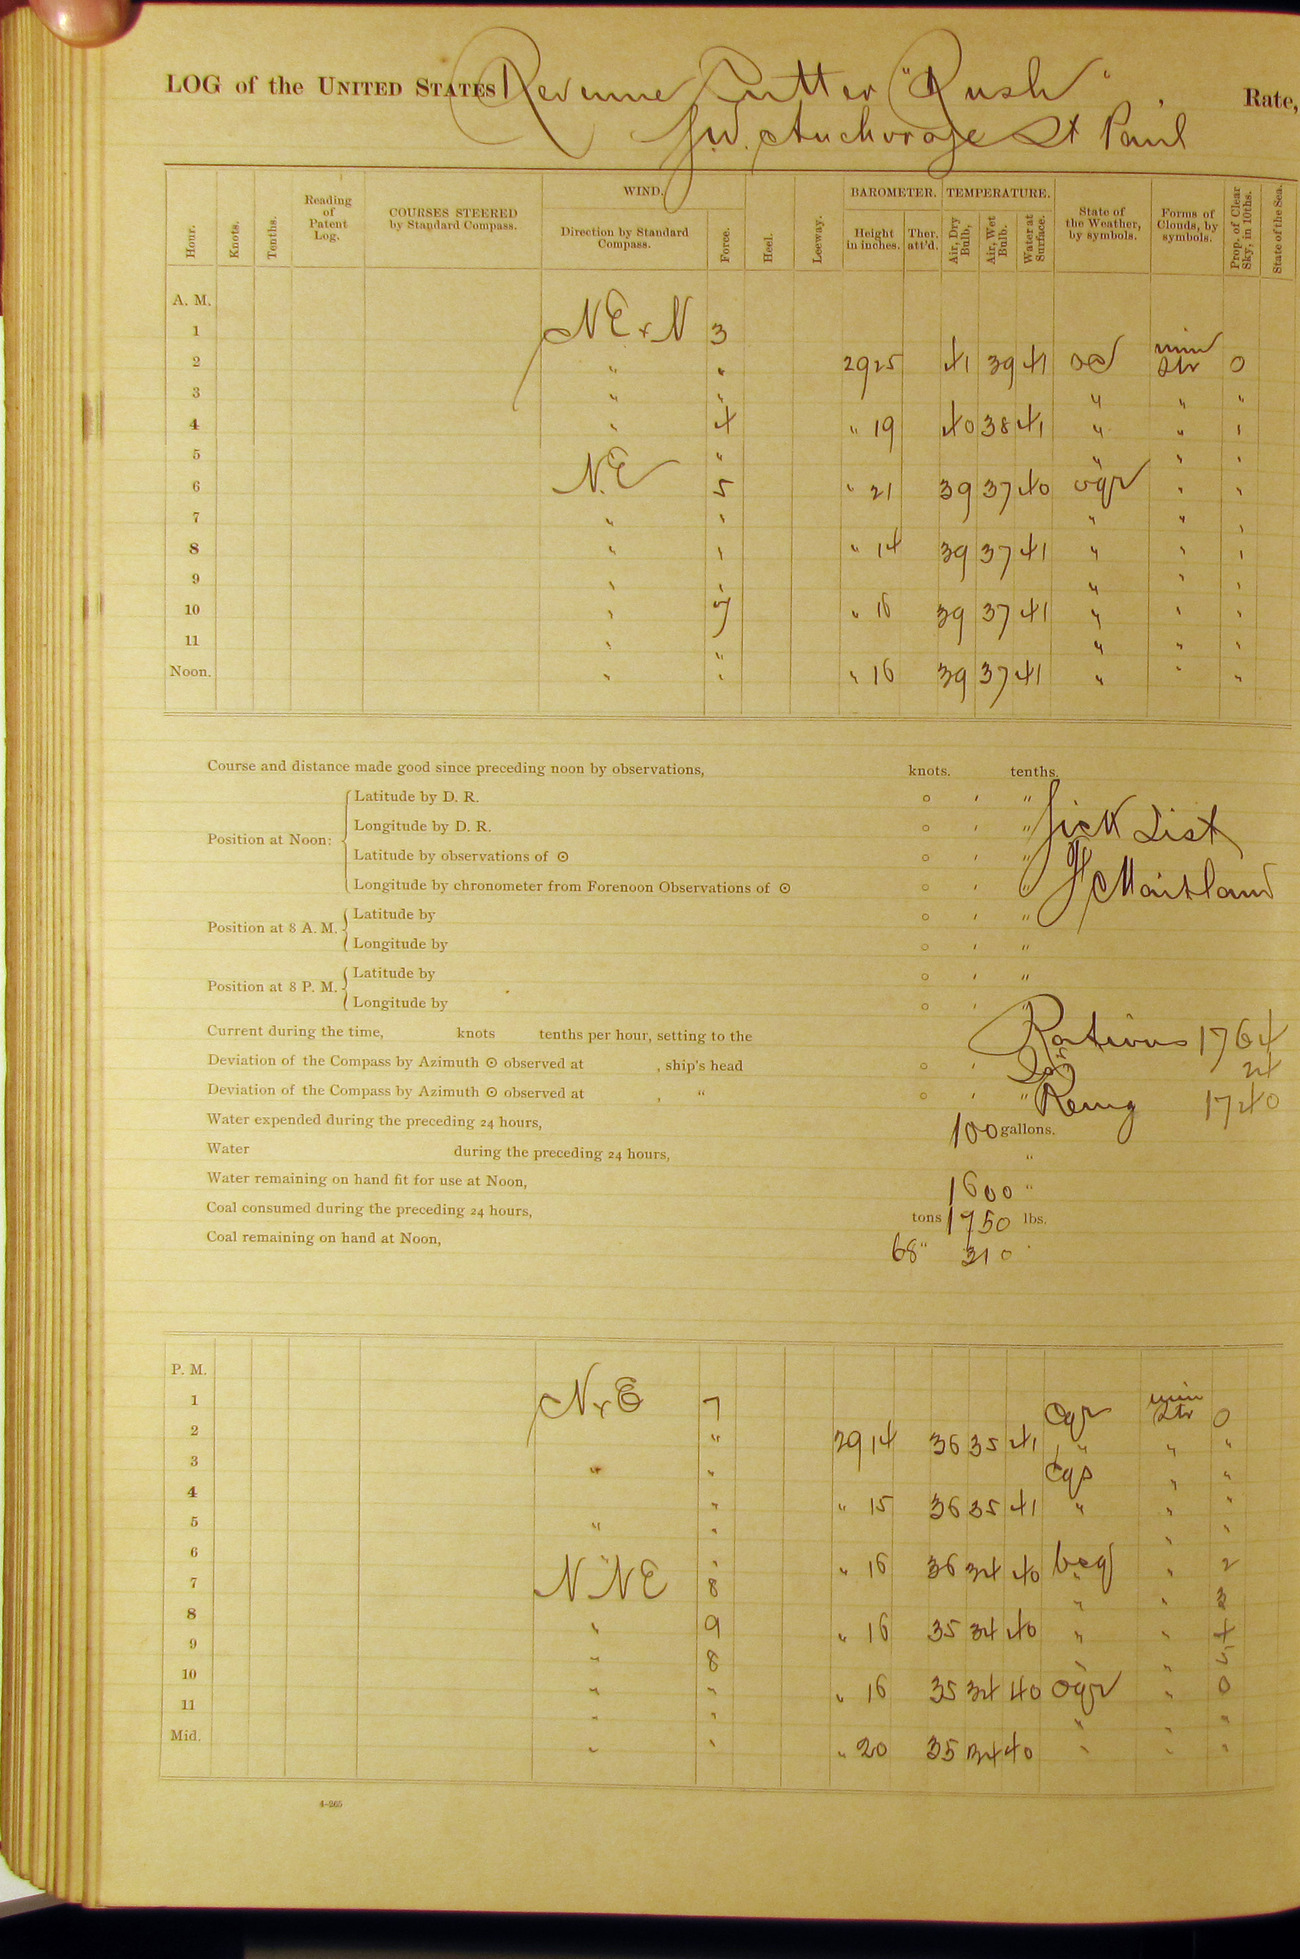 LOG of the UNITED STATES Revenue Cutter "Rush", Rate,
S.W. Anchorage St Paul
Hour. Knots. Tenths. Reading of Patent Log. COURSES STEERED by Standard Compass. WIND. Direction by Standard Compass. Force. Heel. Leeway. BAROMETER. Height in inches. Ther. att'd. TEMPERATURE. Air, Dry Bulb, Air, Wet Bulb. Water at Surface. State of the Weather, by symbols. Forms of Clouds, by symbols. Prop. of Clear Sky, in 10ths. State of the Sea.
A. M.
1 NE x N 3
2 " " 2925 41 39 41 nim str 0
3 " " " " "
4 " 4 " 19 40 38 41 " " "
5 " " " "
6 N.E 5 " 21 39 37 40 ogr " "
7 " " " " "
8 " " " 14 39 37 41 " " "
9 " " " " "
10 " 7 " 16 39 37 41 " " "
11 " " " " "
Noon. " " " 16 39 37 41 " " "
Course and distance made good since preceding noon by observations, knots. tenths.
Position at Noon:
Latitude by D. R. ° ′ ″
Longitude by D. R. ° ′ ″ Sick List
Latitude by observations of ⊙ ° ′ ″
Longitude by chronometer from Forenoon Observations of ⊙ ° ′ ″ Maitland
Position at 8 A. M. Latitude by ° ′ ″
Longitude by ° ′ ″
Position at 8 P. M. Latitude by ° ′ ″
Longitude by ° ′ ″
Current during the time, knots tenths per hour, setting to the Rations 1764
Deviation of the Compass by Azimuth ⊙ observed at , ship's head ° ′ 24
Deviation of the Compass by Azimuth ⊙ observed at , " ° ′ ″ Remg 1740
Water expended during the preceding 24 hours, 100 gallons.
Water during the preceding 24 hours, "
Water remaining on hand fit for use at Noon, 1600 "
Coal consumed during the preceding 24 hours, tons 1950 lbs.
Coal remaining on hand at Noon, 68 " 310 "
P. M.
1 N x E 7 ogr nim str 0
2 " 2914 36 35 41 " " "
3 " " cqs " "
4 " " 15 36 35 41 " " "
5 " " " "
6 " " " 16 36 34 40 bcq " 2
7 N NE 8 " " 3
8 " 9 " 16 35 34 40 " " 4
9 " 8 " "
10 " " " 16 35 34 40 oqr " 0
11 " " " " "
Mid. " " " 20 35 34 40 " " "
4–265